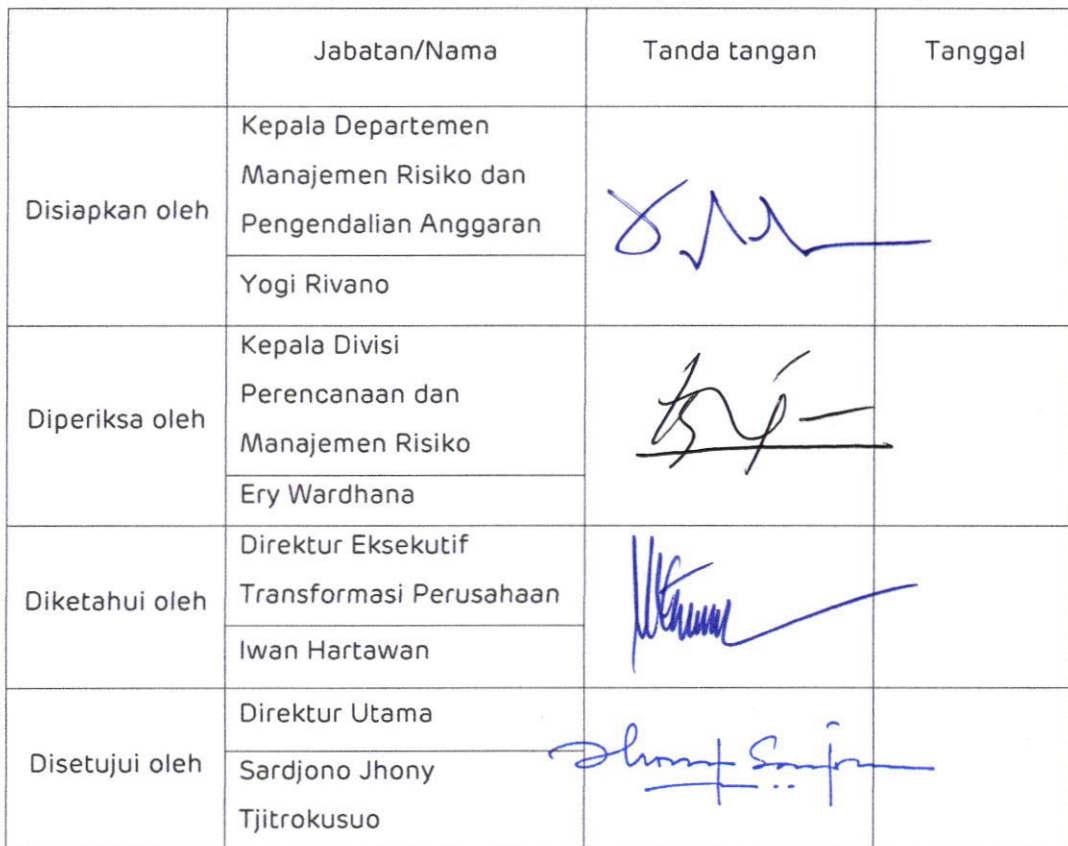 Jabatan/Nama
Tanda tangan
Tanggal
Disiapkan oleh
Kepala Departemen
Manajemen Risiko dan
Pengendalian Anggaran
Yogi Rivano
Diperiksa oleh
Kepala Divisi
Perencanaan dan
Manajemen Risiko
Ery Wardhana
Diketahui oleh
Direktur Eksekutif
Transformasi Perusahaan
Iwan Hartawan
Disetujui oleh
Direktur Utama
Sardjono Jhony
Tjitrokusuo